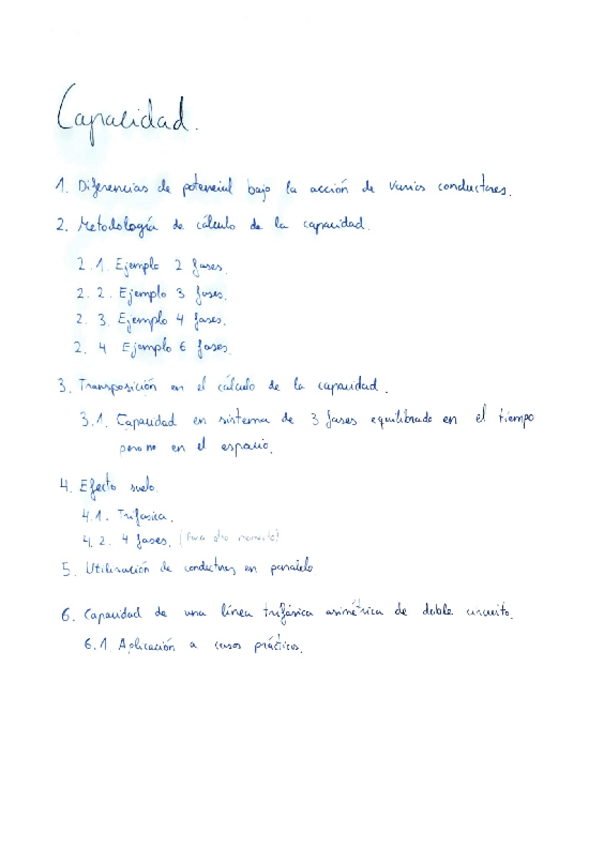 Capacidad.
1. Diferencias de potencial bajo la acción de varios conductores.
2. Metodología de cálculo de la capacidad.
2.1. Ejemplo 2 fases.
2.2. Ejemplo 3 fases.
2.3. Ejemplo 4 fases.
2.4 Ejemplo 6 fases.
3. Transposición en el cálculo de la capacidad.
3.1. Capacidad en sistema de 3 fases equilibrado en el tiempo
pero no en el espacio.
4. Efecto suelo.
4.1. Trifásica.
4.2. 4 fases. (Para otro momento)
5. Utilización de conductores en paralelo
6. Capacidad de una línea trifásica asimétrica de doble circuito.
6.1 Aplicación a casos prácticos.